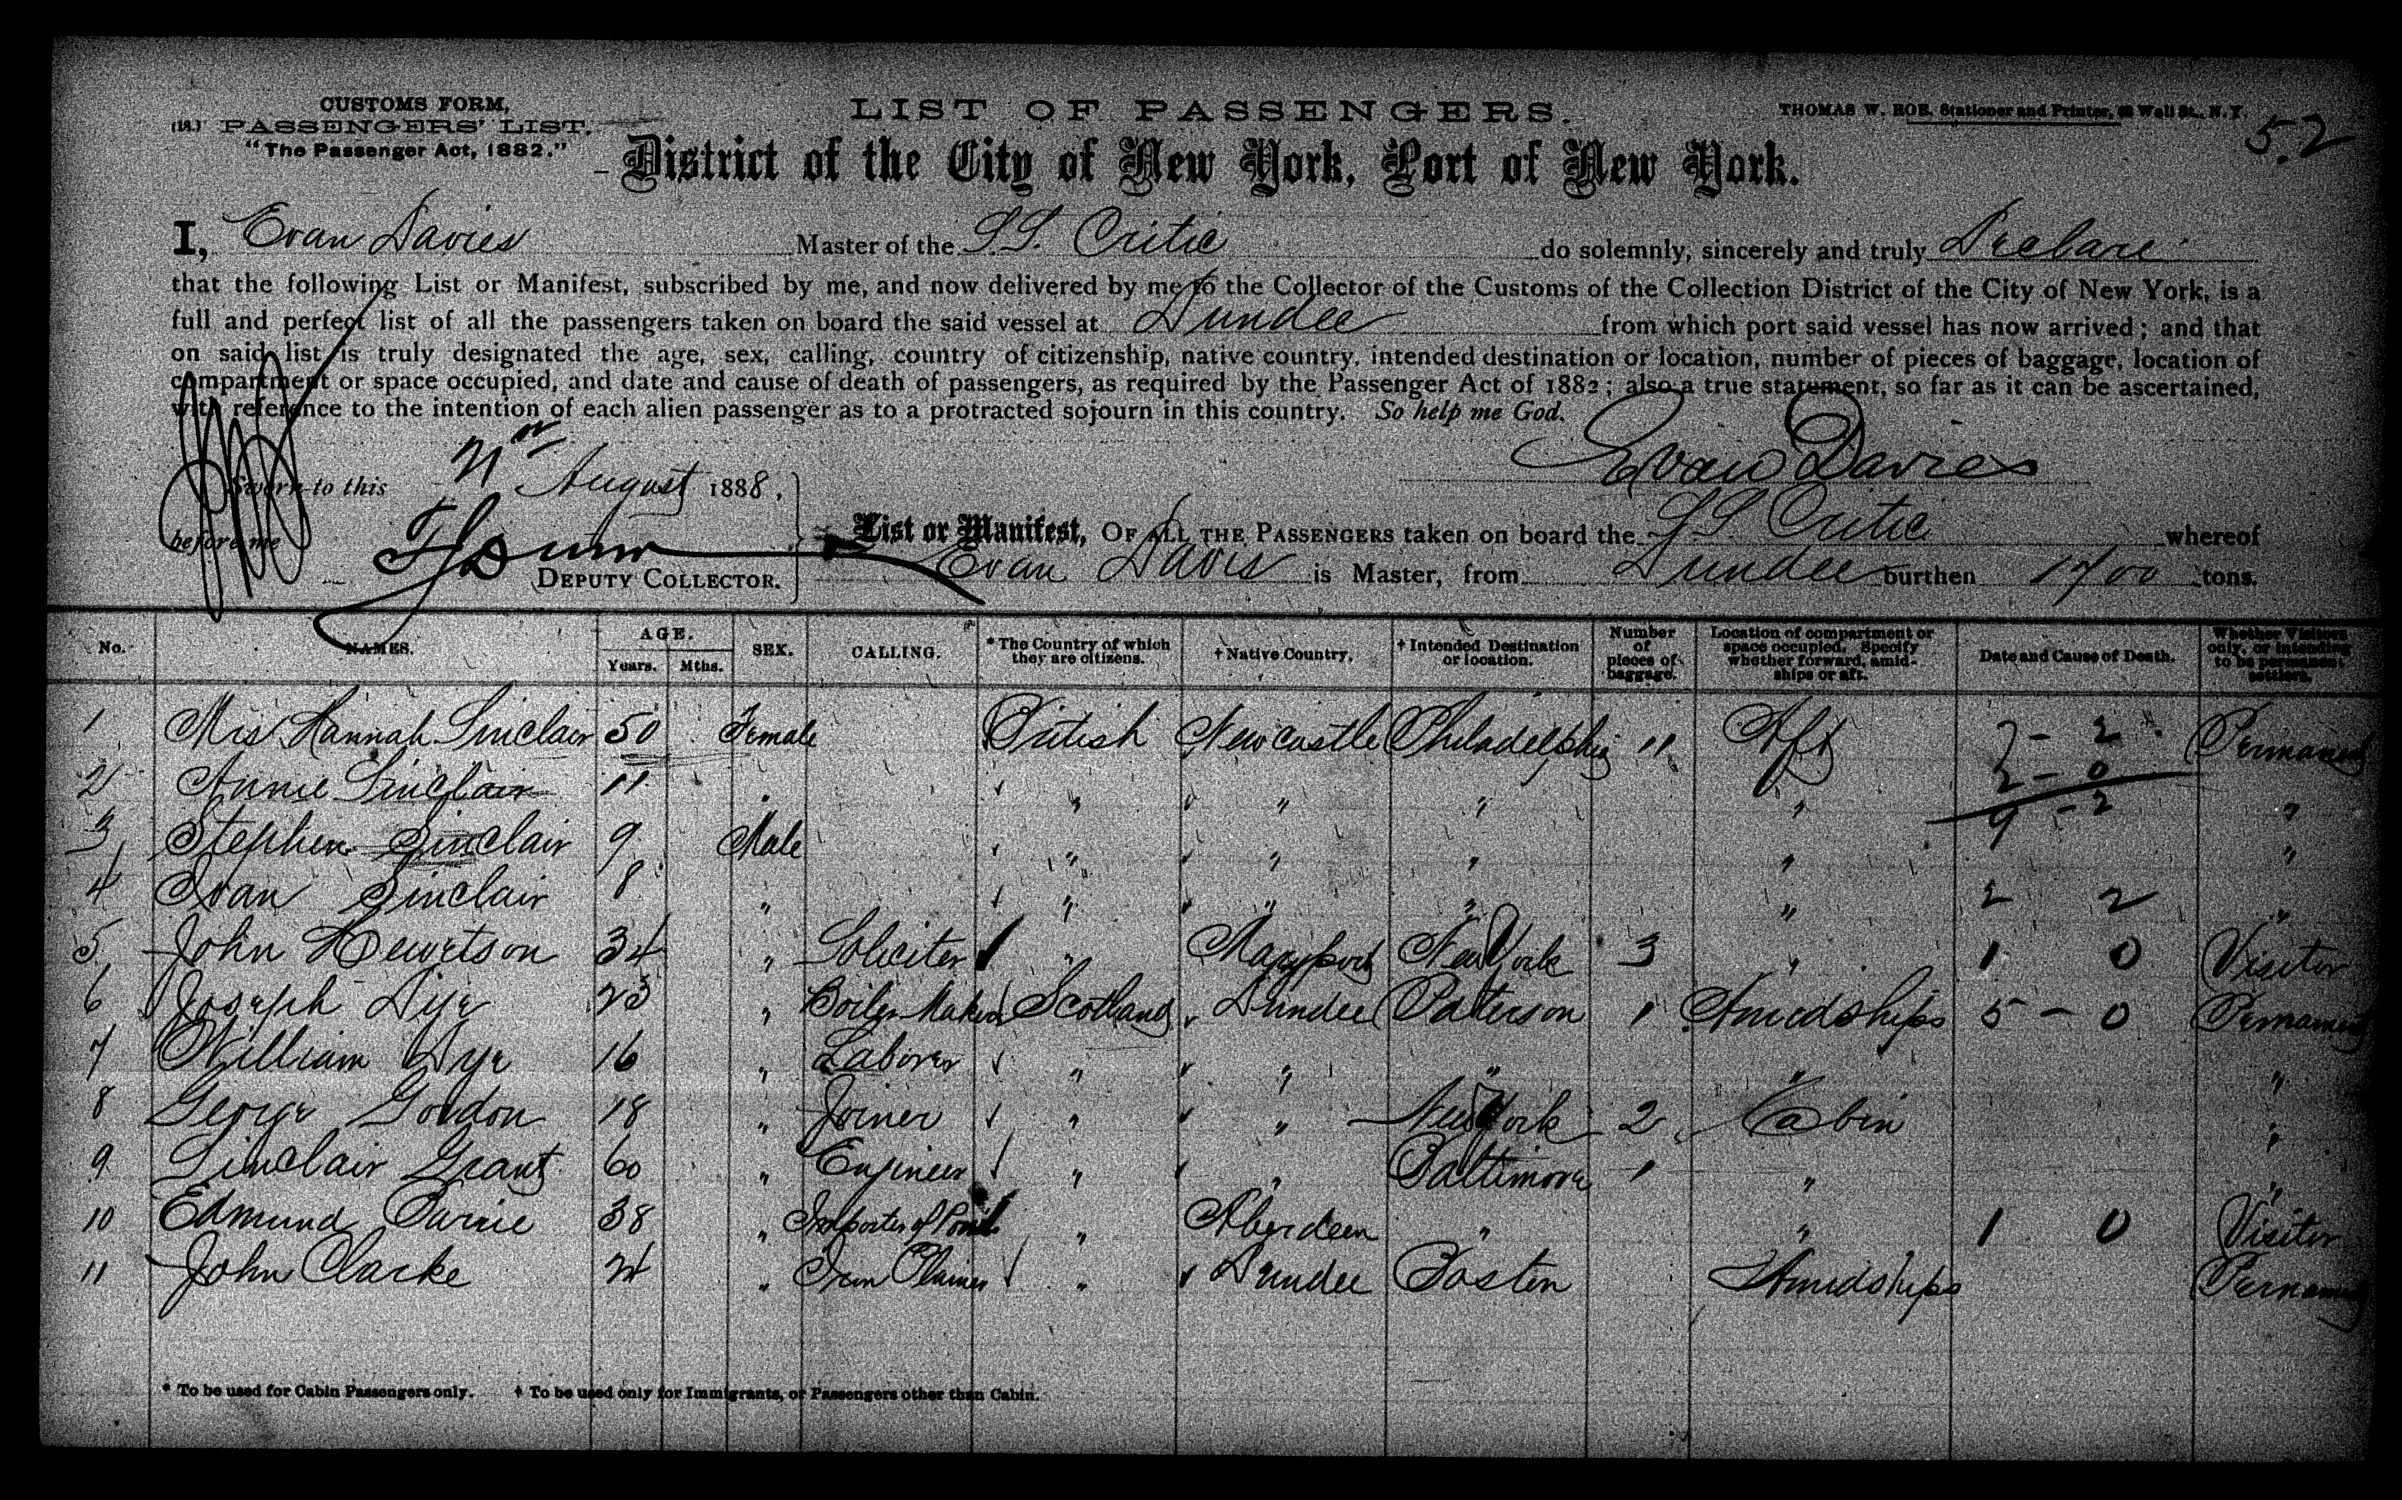 CUSTOMS FORM,
(18.) PASSENGERS' LIST.
"The Passenger Act, 1882."
LIST OF PASSENGERS.
THOMAS W. ROE, Stationer and Printer, Wall St., N.Y.
52
District of the City of New York, Port of New York.
I, Evan Davies Master of the S.S. Critic do solemnly, sincerely and truly Declare
that the following List or Manifest, subscribed by me, and now delivered by me to the Collector of the Customs of the Collection District of the City of New York, is a
full and perfect list of all the passengers taken on board the said vessel at Dundee from which port said vessel has now arrived; and that
on said list is truly designated the age, sex, calling, country of citizenship, native country, intended destination or location, number of pieces of baggage, location of
compartment or space occupied, and date and cause of death of passengers, as required by the Passenger Act of 1882; also a true statement, so far as it can be ascertained,
with reference to the intention of each alien passenger as to a protracted sojourn in this country. So help me God.
Evan Davies
Sworn to this August 1888,
before me
DEPUTY COLLECTOR.
List or Manifest, OF ALL THE PASSENGERS taken on board the S.S. Critic whereof
Evan Davis is Master, from Dundee burthen 1700 tons.
No. NAMES. AGE. Years. Mths. SEX. CALLING. * The Country of which they are citizens. † Native Country. † Intended Destination or location. Number of pieces of baggage. Location of compartment or space occupied. Specify whether forward, amidships or aft. Date and Cause of Death. Whether Visitors only, or intending to be permanent settlers.
1 Mrs Hannah Sinclair 50 Female British Newcastle Philadelphia 11 Aft 7 - 2 Permanent
2 Annie Sinclair 11 " " " " " 2 - 0 "
3 Stephen Sinclair 9 Male " " " " 9 - 2 "
4 Ivan Sinclair 8 " " " " " 2 2 "
5 John Hewetson 34 " Soliciter " Maryport New York 3 " 1 0 Visitor
6 Joseph Dye 23 " Boiler Maker Scotland Dundee Paterson 1 Amidships 5 - 0 Permanent
7 William Dye 16 " Laborer " " " " "
8 George Gordon 18 " Joiner " " New York 2 Cabin "
9 Sinclair Grant 60 " Engineer " " Baltimore 1 " "
10 Edmund 38 " Importer of " Aberdeen " " 1 0 Visitor
11 John Clarke 24 " Iron " Dundee Boston Amidships Permanent
* To be used for Cabin Passengers only. † To be used only for Immigrants, or Passengers other than Cabin.